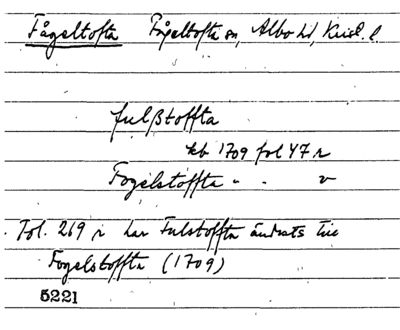 Fågeltofta Fågeltofta sn, Albo hd, Krist. l
fulßtoffta
kb 1709 fol 47 r
Fogelstoffta " " v
Fol. 269 r har Fulstoffta ändrats till
Fogelstoffta (1709)
5221